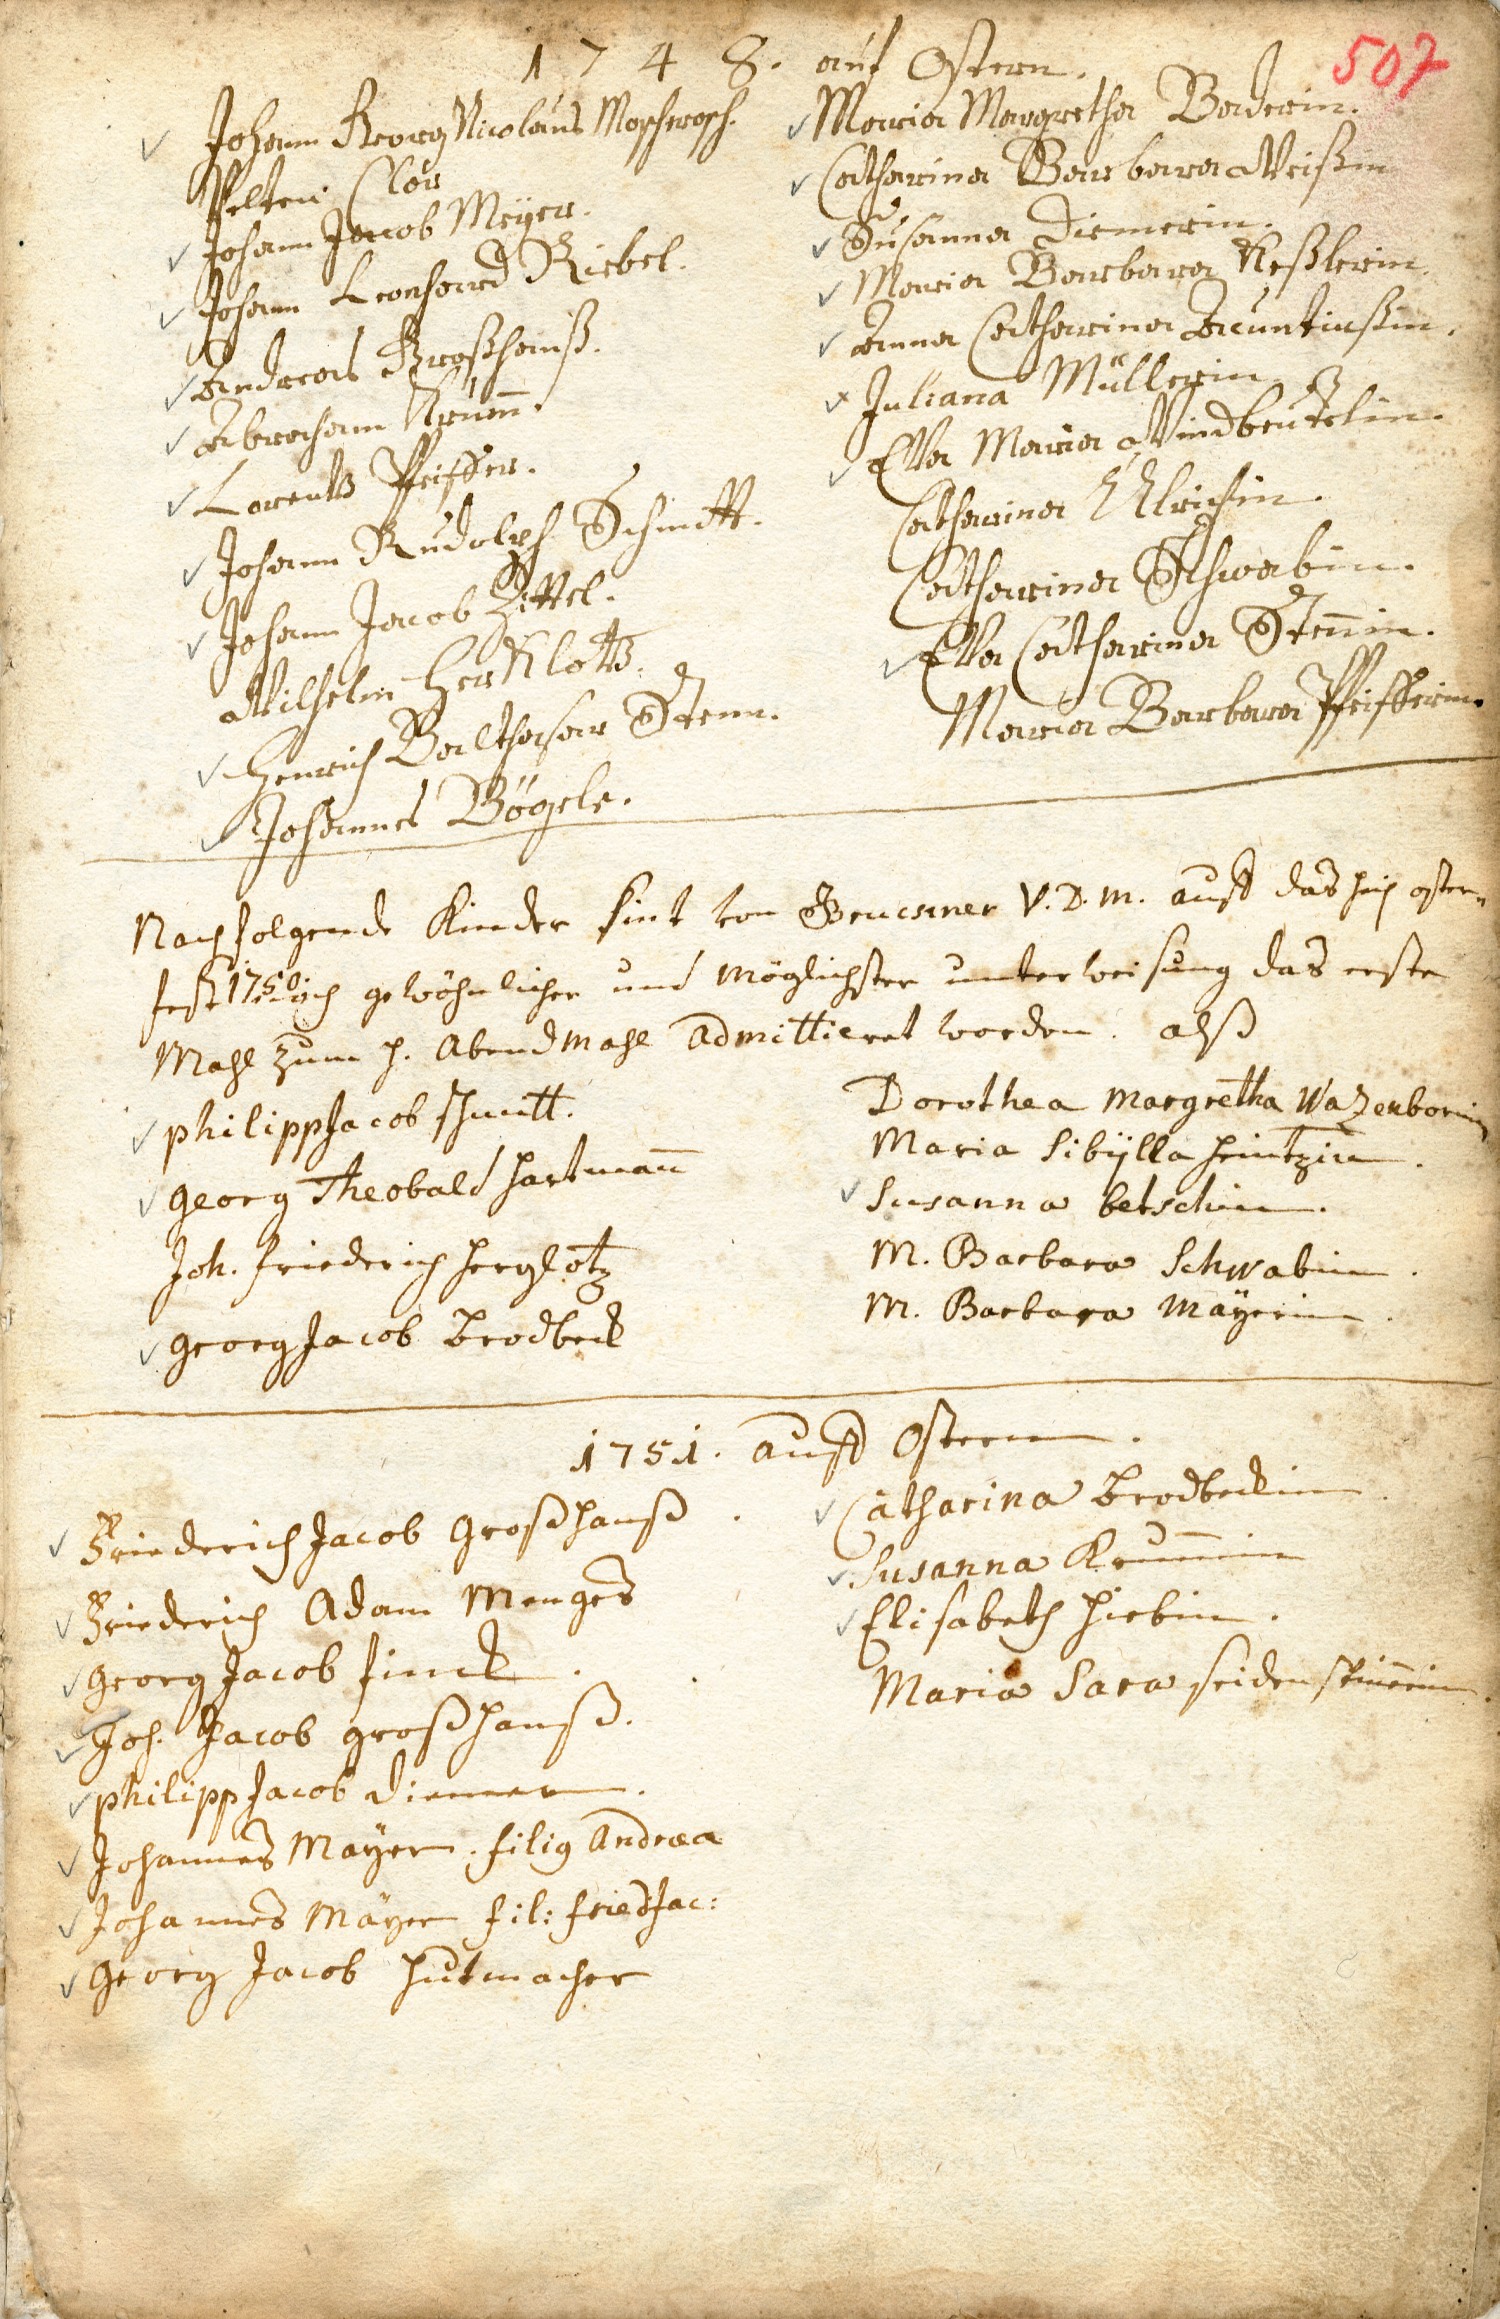 507
1748. auf Ostern.
Johann Georg Nicolaus
Velten Clor
Johann Jacob Meÿer.
Johann Leonhard Riebel.
Andreas Großhanß.
Abraham Krum̅.
Lorentz Pfeiffer.
Johann Rudolph Schmitt.
Johann Jacob Zittel.
Wilhelm Herklotz.
Henrich Balthasar Stenn.
Johannes Bögele.
Maria Margretha Baderin.
Catharina Barbara Weißin
Susanna Diemerin.
Maria Barbara Keßlerin.
Anna Catharina
Juliana Müllerin
Eva Maria Windbeutelin.
Catharina Ulrichin.
Catharina Schwabin.
Eva Catharina Sten̅in.
Maria Barbara Pfeifferin.
Nachfolgende Kinder sint von V. D. M. auff das heil. oster-
fest 1750 nach gewöhnlicher und möglichster unterweisung das erste
Mahl zum h. Abendmahl admittieret worden. alß
philipp Jacob schmitt.
georg Theobald hartman̅
Joh. friederich herglotz
georg Jacob brodbeck
Dorothea margretha Wazenborin
Maria Sibÿlla heintzin.
Susanna betschin.
M. Barbara Schwabin.
M. Barbara Mäÿerin.
1751. auff Ostern.
Friederich Jacob großhanß.
Friederich Adam Menges
georg Jacob finck.
Joh. Jacob großhanß.
philipp Jacob diemer.
Johannes Mayer. filig Andrea
Johannes Mäyer fil: fried Jac:
georg Jacob hutmacher
Catharina brodbeckin.
Susanna Krum̅in
Elisabeth hiebin.
Maria Sara seidenspin̅erin.